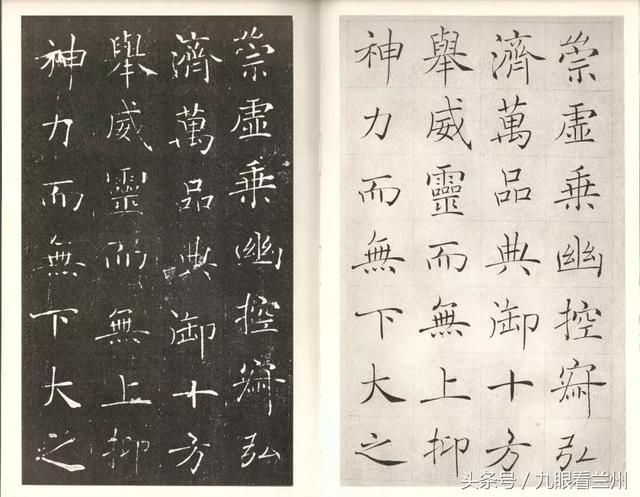 崇虛乘幽控寂弘
濟萬品典御十方
舉威靈而無上抑
神力而無下大之
崇虛乘幽控寂弘
濟萬品典御十方
舉威靈而無上抑
神力而無下大之
头条号 / 九眼看兰州